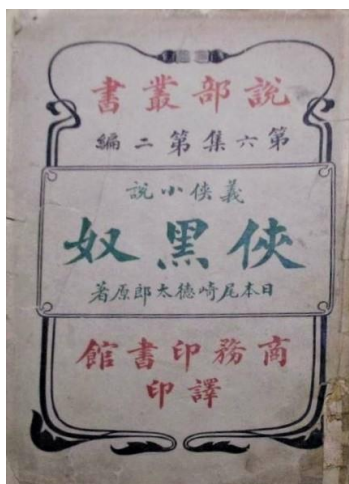 說部叢書
第六集第二編
義俠小說
俠黑奴
日本尾崎德太郎原著
商務印書館
譯印